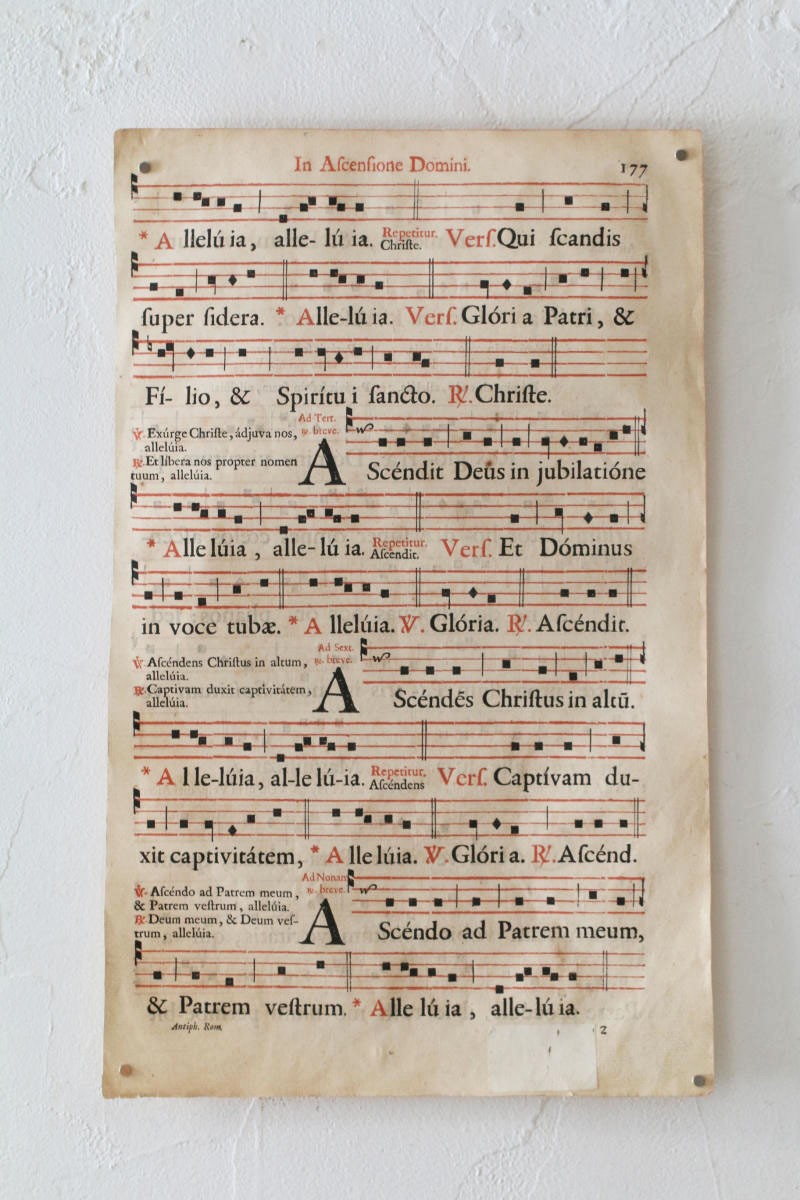 In Aſcenſione Domini.
177
* A llelú ia, alle- lú ia. Repetitur. Chriſte. Verſ. Qui ſcandis
ſuper ſidera. * Alle-lú ia. Verſ. Glóri a Patri, &
Fí- lio, & Spirítu i ſancto. ℟. Chriſte.
℣. Exúrge Chriſte, ádjuva nos,
allelúia.
℟. Et líbera nos propter nomen
tuum, allelúia.
Ad Tert.
℟. breve.
AScéndit Deûs in jubilatióne
* Alle lúia, alle- lú ia. Repetitur. Aſcéndit. Verſ. Et Dóminus
in voce tubæ. * A llelúia. ℣. Glória. ℟. Aſcéndit.
℣. Aſcéndens Chriſtus in altum,
allelúia.
℟. Captivam duxit captivitátem,
allelúia.
Ad Sext.
℟. breve.
AScéndẽs Chriſtus in altũ.
* A l le-lúia, al-le lú-ia. Repetitur. Aſcéndens Verſ. Captívam du-
xit captivitátem, * A lle lúia. ℣. Glóri a. ℟. Aſcénd.
℣. Aſcéndo ad Patrem meum,
& Patrem veſtrum, allelúia.
℟. Deum meum, & Deum veſ-
trum, allelúia.
Ad Nonam
℟. breve.
AScéndo ad Patrem meum,
& Patrem veſtrum. * Alle lú ia, alle-lú ia.
Antiph. Rom.
2